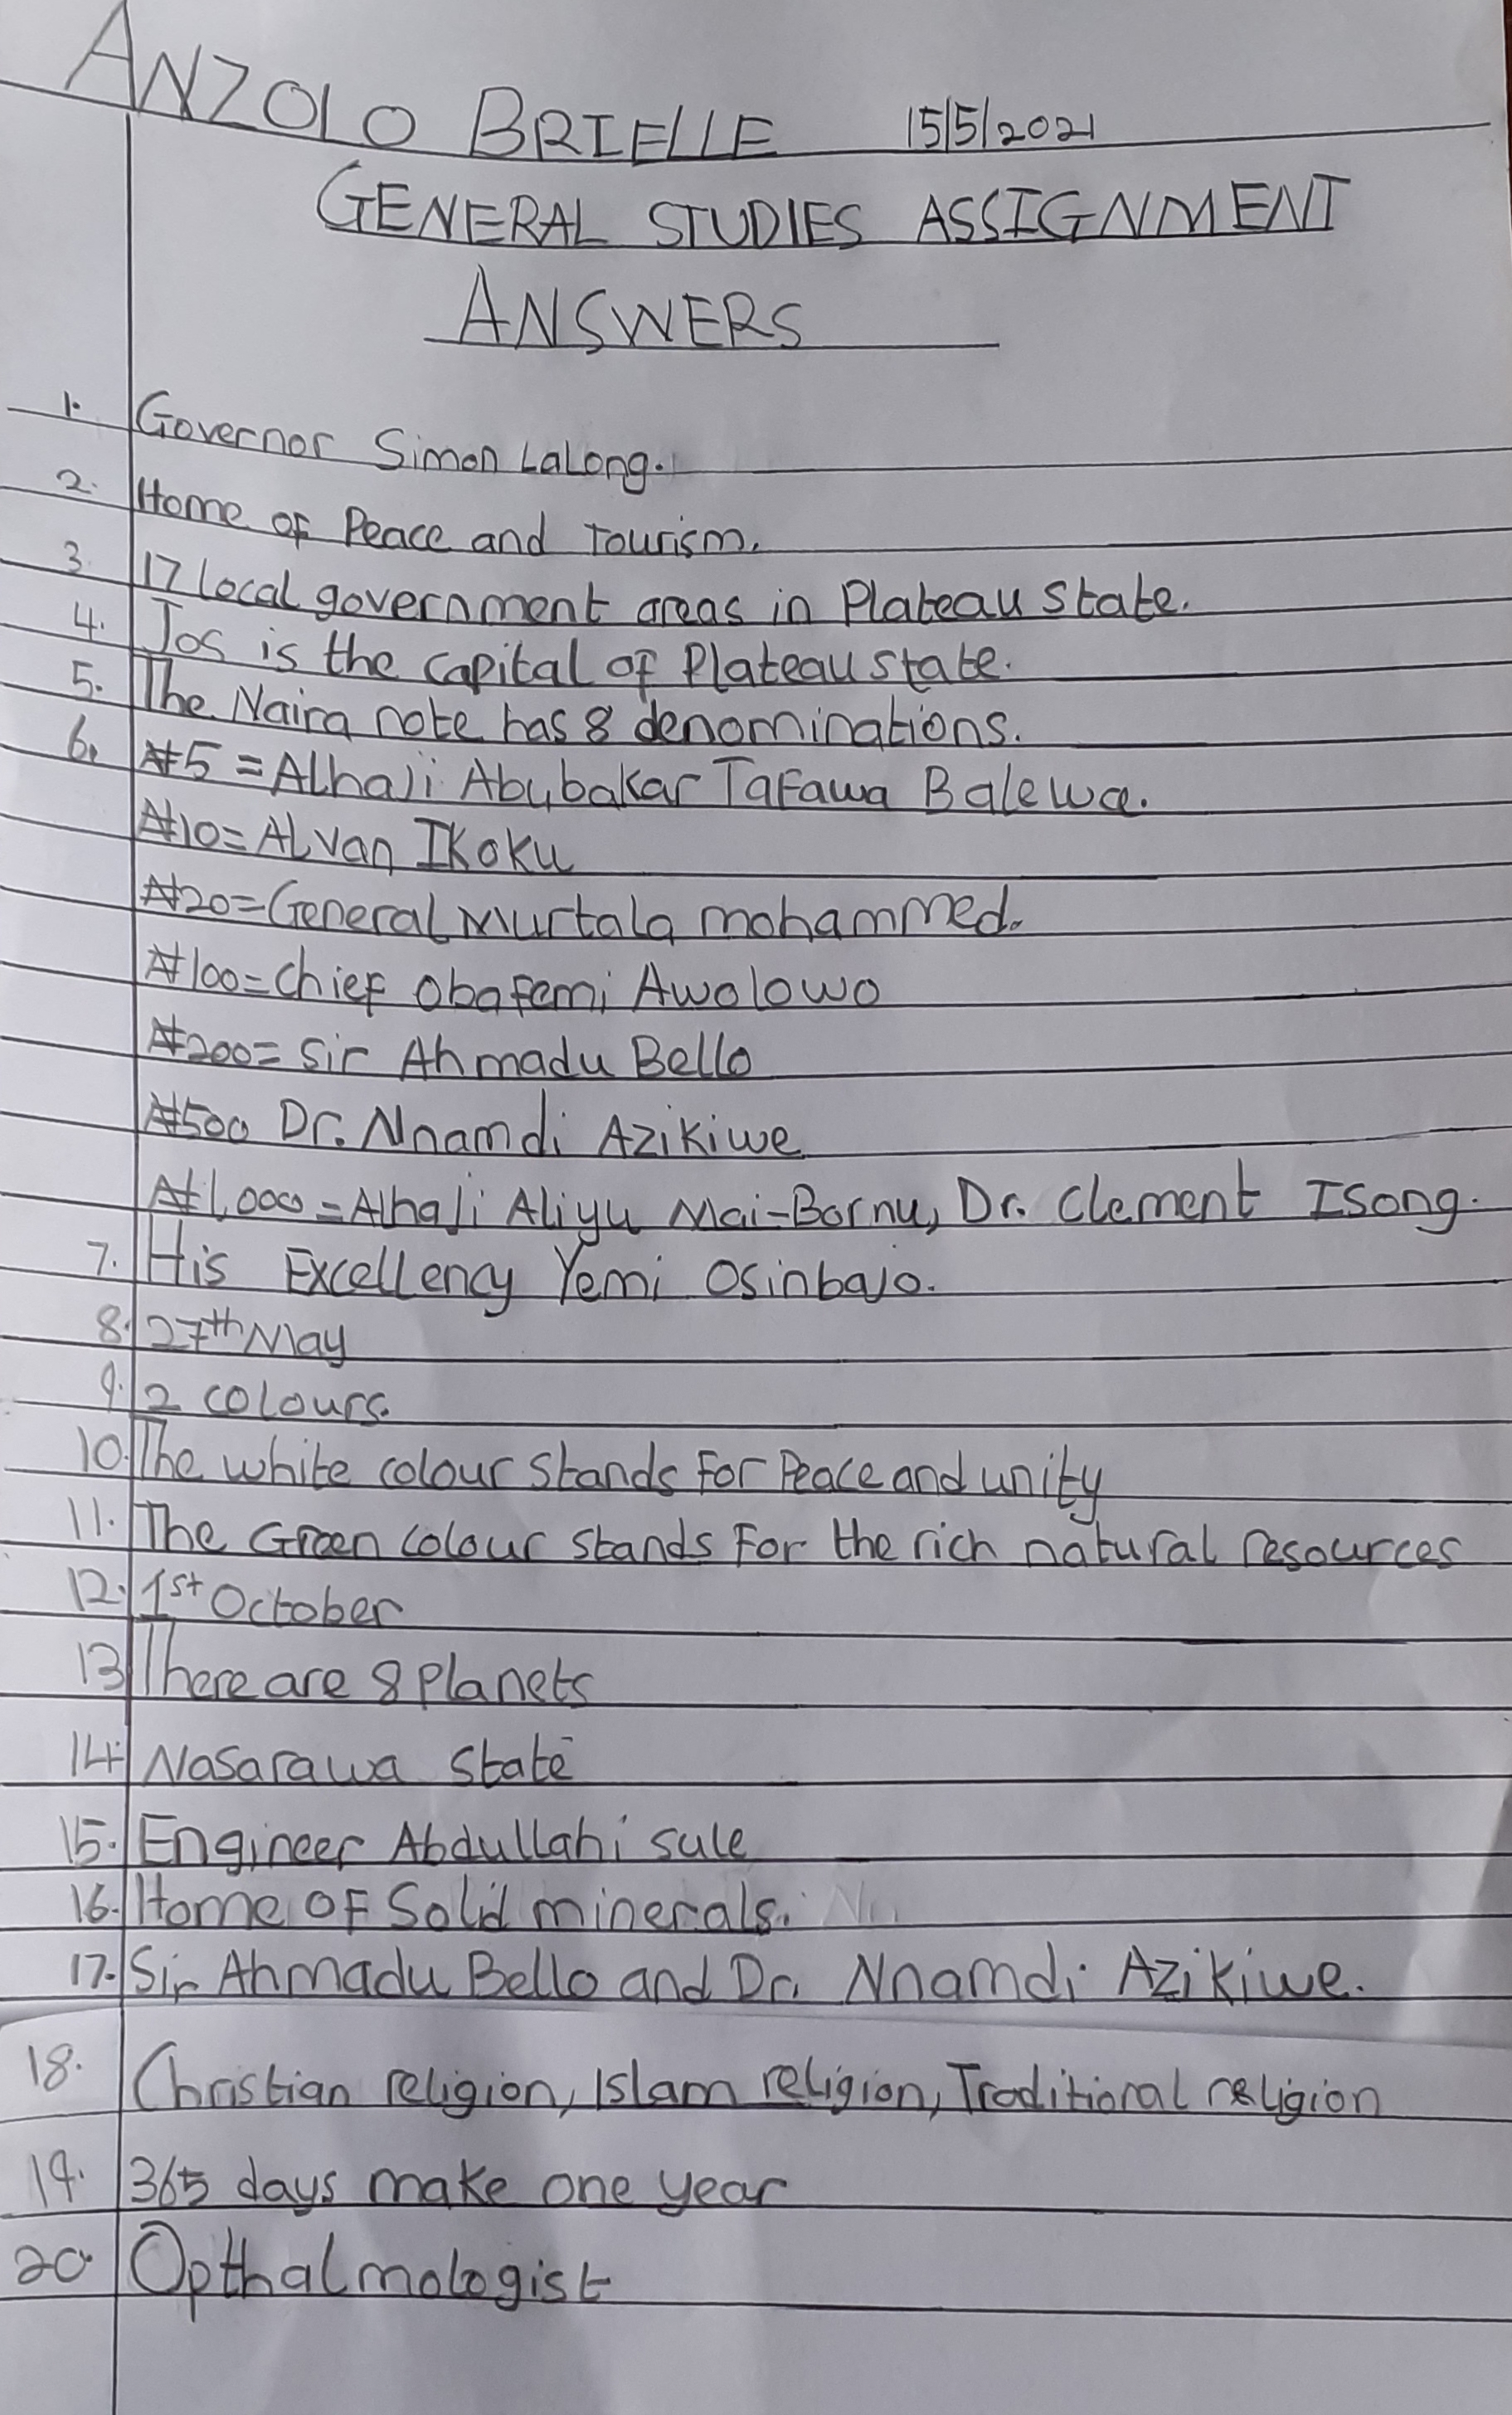 ANZOLO BRIELLE 15/5/2021
GENERAL STUDIES ASSIGNMENT
ANSWERS
1. Governor Simon Lalong.
2. Home of Peace and Tourism.
3. 17 local government areas in Plateau state.
4. Jos is the capital of Plateau state.
5. The Naira note has 8 denominations.
6. ₦5 = Alhaji Abubakar Tafawa Balewa.
₦10 = Alvan Ikoku
₦20 = General Murtala mohammed.
₦100 = chief Obafemi Awolowo
₦200 = Sir Ahmadu Bello
₦500 Dr. Nnamdi Azikiwe
₦1,000 = Alhaji Aliyu Mai-Bornu, Dr. Clement Isong.
7. His Excellency Yemi Osinbajo.
8. 27th May
9. 2 colours.
10. The white colour stands for Peace and unity
11. The Green colour stands for the rich natural resources
12. 1st October
13 There are 8 planets
14. Nasarawa state
15. Engineer Abdullahi sule
16. Home of Solid minerals.
17. Sir Ahmadu Bello and Dr. Nnamdi Azikiwe.
18. Christian religion, Islam religion, Traditional religion
19. 365 days make one year
20. Opthalmologist